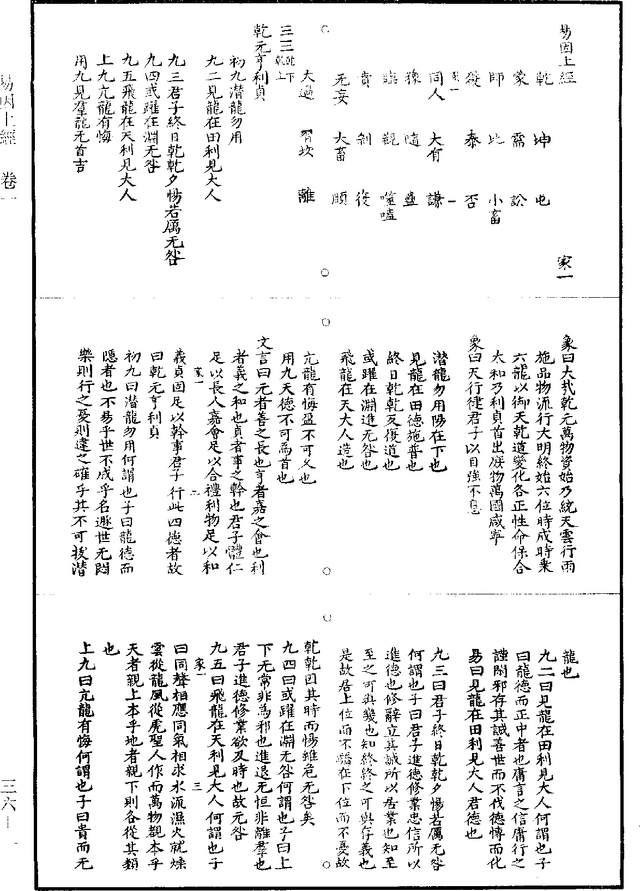 易因上經
家一
乾 坤 屯
蒙 需 訟
師 比 小畜
履 泰 否
同人 大有 謙
豫 隨 蠱
臨 觀 噬嗑
賁 剝 復
无妄 大畜 頤
大過 習坎 離
乾下
乾上
乾元亨利貞
初九潛龍勿用
九二見龍在田利見大人
九三君子終日乾乾夕惕若厲无咎
九四或躍在淵无咎
九五飛龍在天利見大人
上九亢龍有悔
用九見羣龍无首吉
易因上經 卷一
彖曰大哉乾元萬物資始乃統天雲行雨
施品物流行大明終始六位時成時乘
六龍以御天乾道變化各正性命保合
太和乃利貞首出庶物萬國咸寧
象曰天行健君子以自強不息
潛龍勿用陽在下也
見龍在田德施普也
終日乾乾反復道也
或躍在淵進无咎也
飛龍在天大人造也
亢龍有悔盈不可久也
用九天德不可為首也
文言曰元者善之長也亨者嘉之會也利
者義之和也貞者事之幹也君子體仁
足以長人嘉會足以合禮利物足以和
義貞固足以幹事君子行此四德者故
曰乾元亨利貞
初九曰潛龍勿用何謂也子曰龍德而
隱者也不易乎世不成乎名遯世无悶
樂則行之憂則違之確乎其不可拔潛
龍也
九二曰見龍在田利見大人何謂也子
曰龍德而正中者也庸言之信庸行之
謹閑邪存其誠善世而不伐德博而化
易曰見龍在田利見大人君德也
九三曰君子終日乾乾夕惕若厲无咎
何謂也子曰君子進德修業忠信所以
進德也修辭立其誠所以居業也知至
至之可與幾也知終終之可與存義也
是故居上位而不驕在下位而不憂故
乾乾因其時而惕雖危无咎矣
九四曰或躍在淵无咎何謂也子曰上
下无常非為邪也進退无恒非離羣也
君子進德修業欲及時也故无咎
九五曰飛龍在天利見大人何謂也子
家一 三
曰同聲相應同氣相求水流濕火就燥
雲從龍風從虎聖人作而萬物覩本乎
天者親上本乎地者親下則各從其類
也
上九曰亢龍有悔何謂也子曰貴而无
三六—